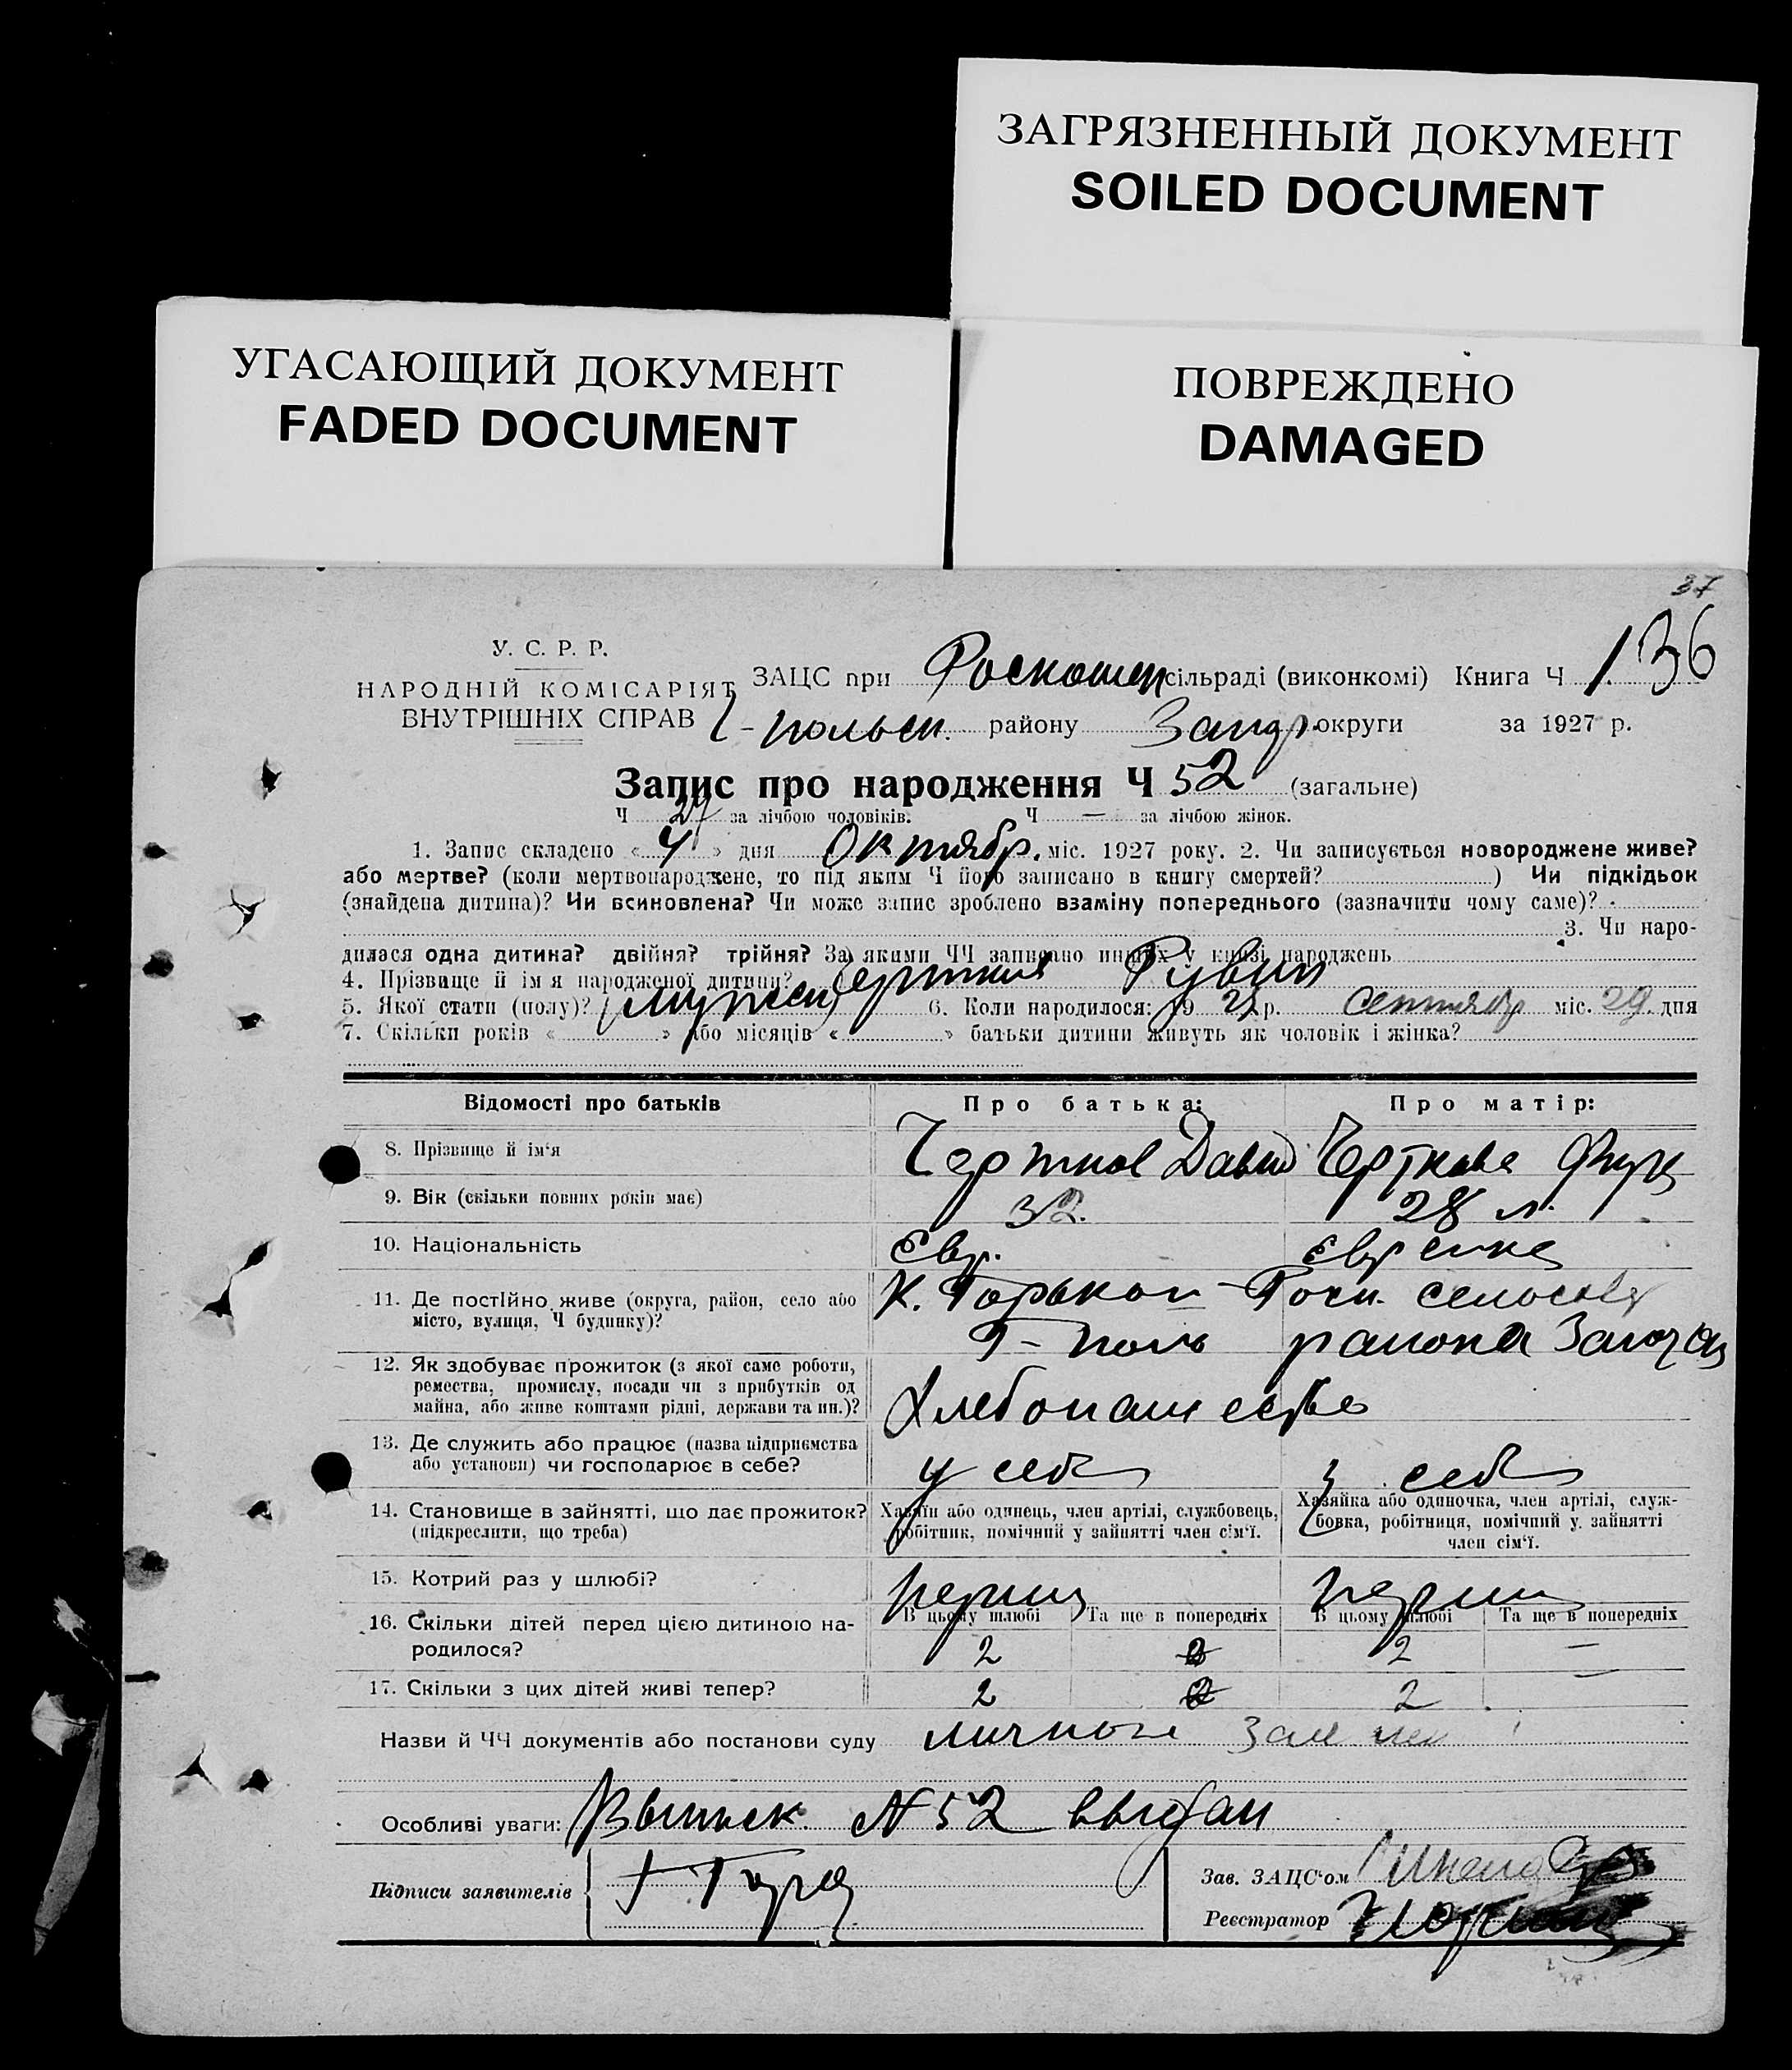 ЗАГРЯЗНЕННЫЙ ДОКУМЕНТ
SOILED DOCUMENT
УГАСАЮЩИЙ ДОКУМЕНТ
FADED DOCUMENT
ПОВРЕЖДЕНО
DAMAGED
37
У. С. Р. Р.
НАРОДНІЙ КОМІСАРІЯТ
ВНУТРІШНІХ СПРАВ
ЗАЦС при Роскошен сільраді (виконкомі) Книга Ч 136
Г-польск. району Запор. округи за 1927 р.
Запис про народження Ч 52 (загальне)
Ч 27 за лічбою чоловіків. Ч — за лічбою жінок.
1. Запис складено « 4 » дня Октябр. міс. 1927 року. 2. Чи записується новороджене живе?
або мертве? (коли мертвонароджене, то під яким Ч його записано в книгу смертей? ) Чи підкідьок
(знайдена дитина)? Чи всиновлена? Чи може запис зроблено взаміну попереднього (зазначити чому саме)?
3. Чи наро-
дилася одна дитина? двійня? трійня? За якими ЧЧ записано инших у книзі народжень
4. Прізвище й ім'я народженої дитини? Чертков Рувин
5. Якої стати (полу)? мужск 6. Коли народилося: 19 27 р. Сентябр міс. 29 дня
7. Скільки років « » або місяців « » батьки дитини живуть як чоловік і жінка?
Відомості про батьків Про батька: Про матір:
8. Прізвище й ім'я Чертков Давид Черткова
9. Вік (скільки повних років має) 32. 28 л.
10. Національність Євр. Єврейка
11. Де постійно живе (округа, район, село або
місто, вулиця, Ч будинку)?
К. Горькой - Роск. сельсовет
Г-поль района Запор
12. Як здобуває прожиток (з якої саме роботи,
ремества, промислу, посади чи з прибутків од
майна, або живе коштами рідні, держави та ин.)?
Хлебопашество
13. Де служить або працює (назва підприємства
або установи) чи господарює в себе?
у себя у себя
14. Становище в зайнятті, що дає прожиток?
(підкреслити, що треба)
Хазяїн або одинець, член артілі, службовець,
робітник, помічний у зайнятті член сім'ї.
Хазяйка або одиночка, член артілі, служ-
бовка, робітниця, помічний у зайнятті
член сім'ї.
15. Котрий раз у шлюбі? перший перший
16. Скільки дітей перед цією дитиною на-
родилося?
В цьому шлюбі Та ще в попередніх В цьому шлюбі Та ще в попередніх
2 2 2 —
17. Скільки з цих дітей живі тепер? 2 2 2 —
Назви й ЧЧ документів або постанови суду личное
Особливі уваги: Выписк. N 52 выдан
Підписи заявителів
Зав. ЗАЦС'ом
Реєстратор